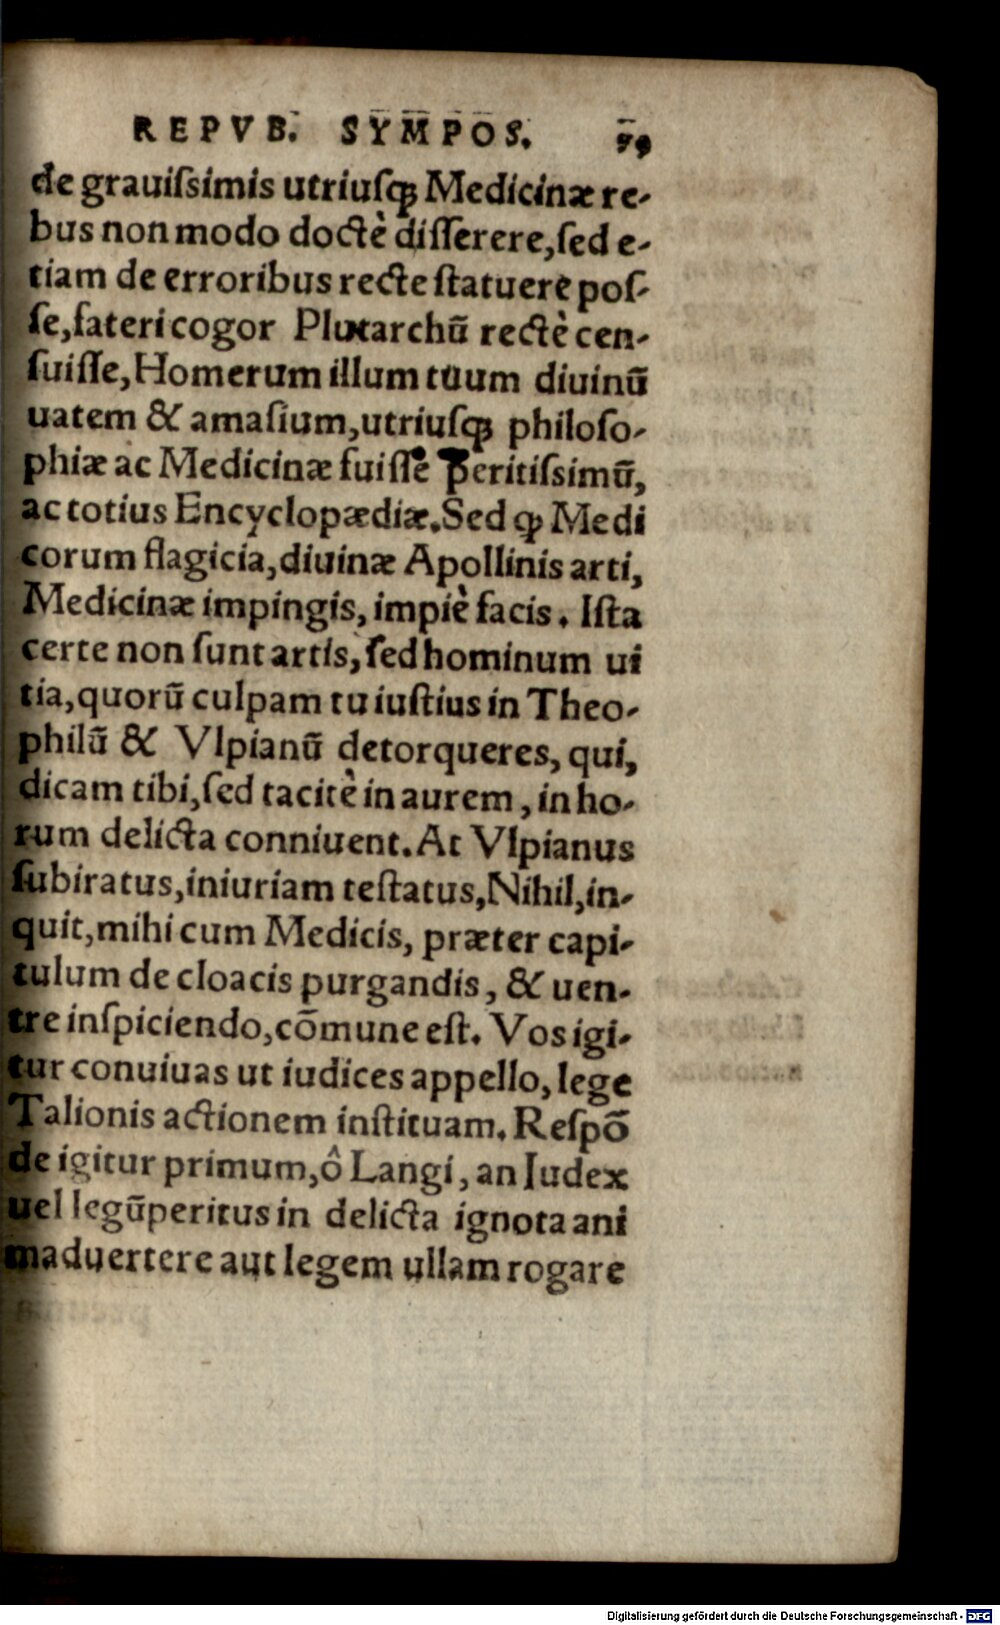 REPVB. SYMPOS. 59
de grauiſsimis utriuſqꝫ Medicinæ re-
bus non modo doctè diſſerere, ſed e-
tiam de erroribus recte ſtatuere poſ-
ſe, fateri cogor Plutarchū rectè cen-
ſuiſſe, Homerum illum tuum diuinū
uatem & amaſium, utriuſqꝫ philoſo-
phiæ ac Medicinæ fuiſſe peritiſsimū,
ac totius Encyclopædiæ. Sed ꝙ Medi
corum flagicia, diuinæ Apollinis arti,
Medicinæ impingis, impiè facis. Iſta
certe non ſunt artis, ſed hominum ui
tia, quorū culpam tu iuſtius in Theo-
philū & Vlpianū detorqueres, qui,
dicam tibi, ſed tacitè in aurem, in ho-
rum delicta conniuent. At Vlpianus
ſubiratus, iniuriam teſtatus, Nihil, in-
quit, mihi cum Medicis, præter capi-
tulum de cloacis purgandis, & uen-
tre inſpiciendo, cōmune eſt. Vos igi-
tur conuiuas ut iudices appello, lege
Talionis actionem inſtituam. Reſpō
de igitur primum, ô Langi, an Iudex
uel legūperitus in delicta ignota ani
maduertere aut legem ullam rogare
Digitalisierung gefördert durch die Deutsche Forschungsgemeinschaft - DFG